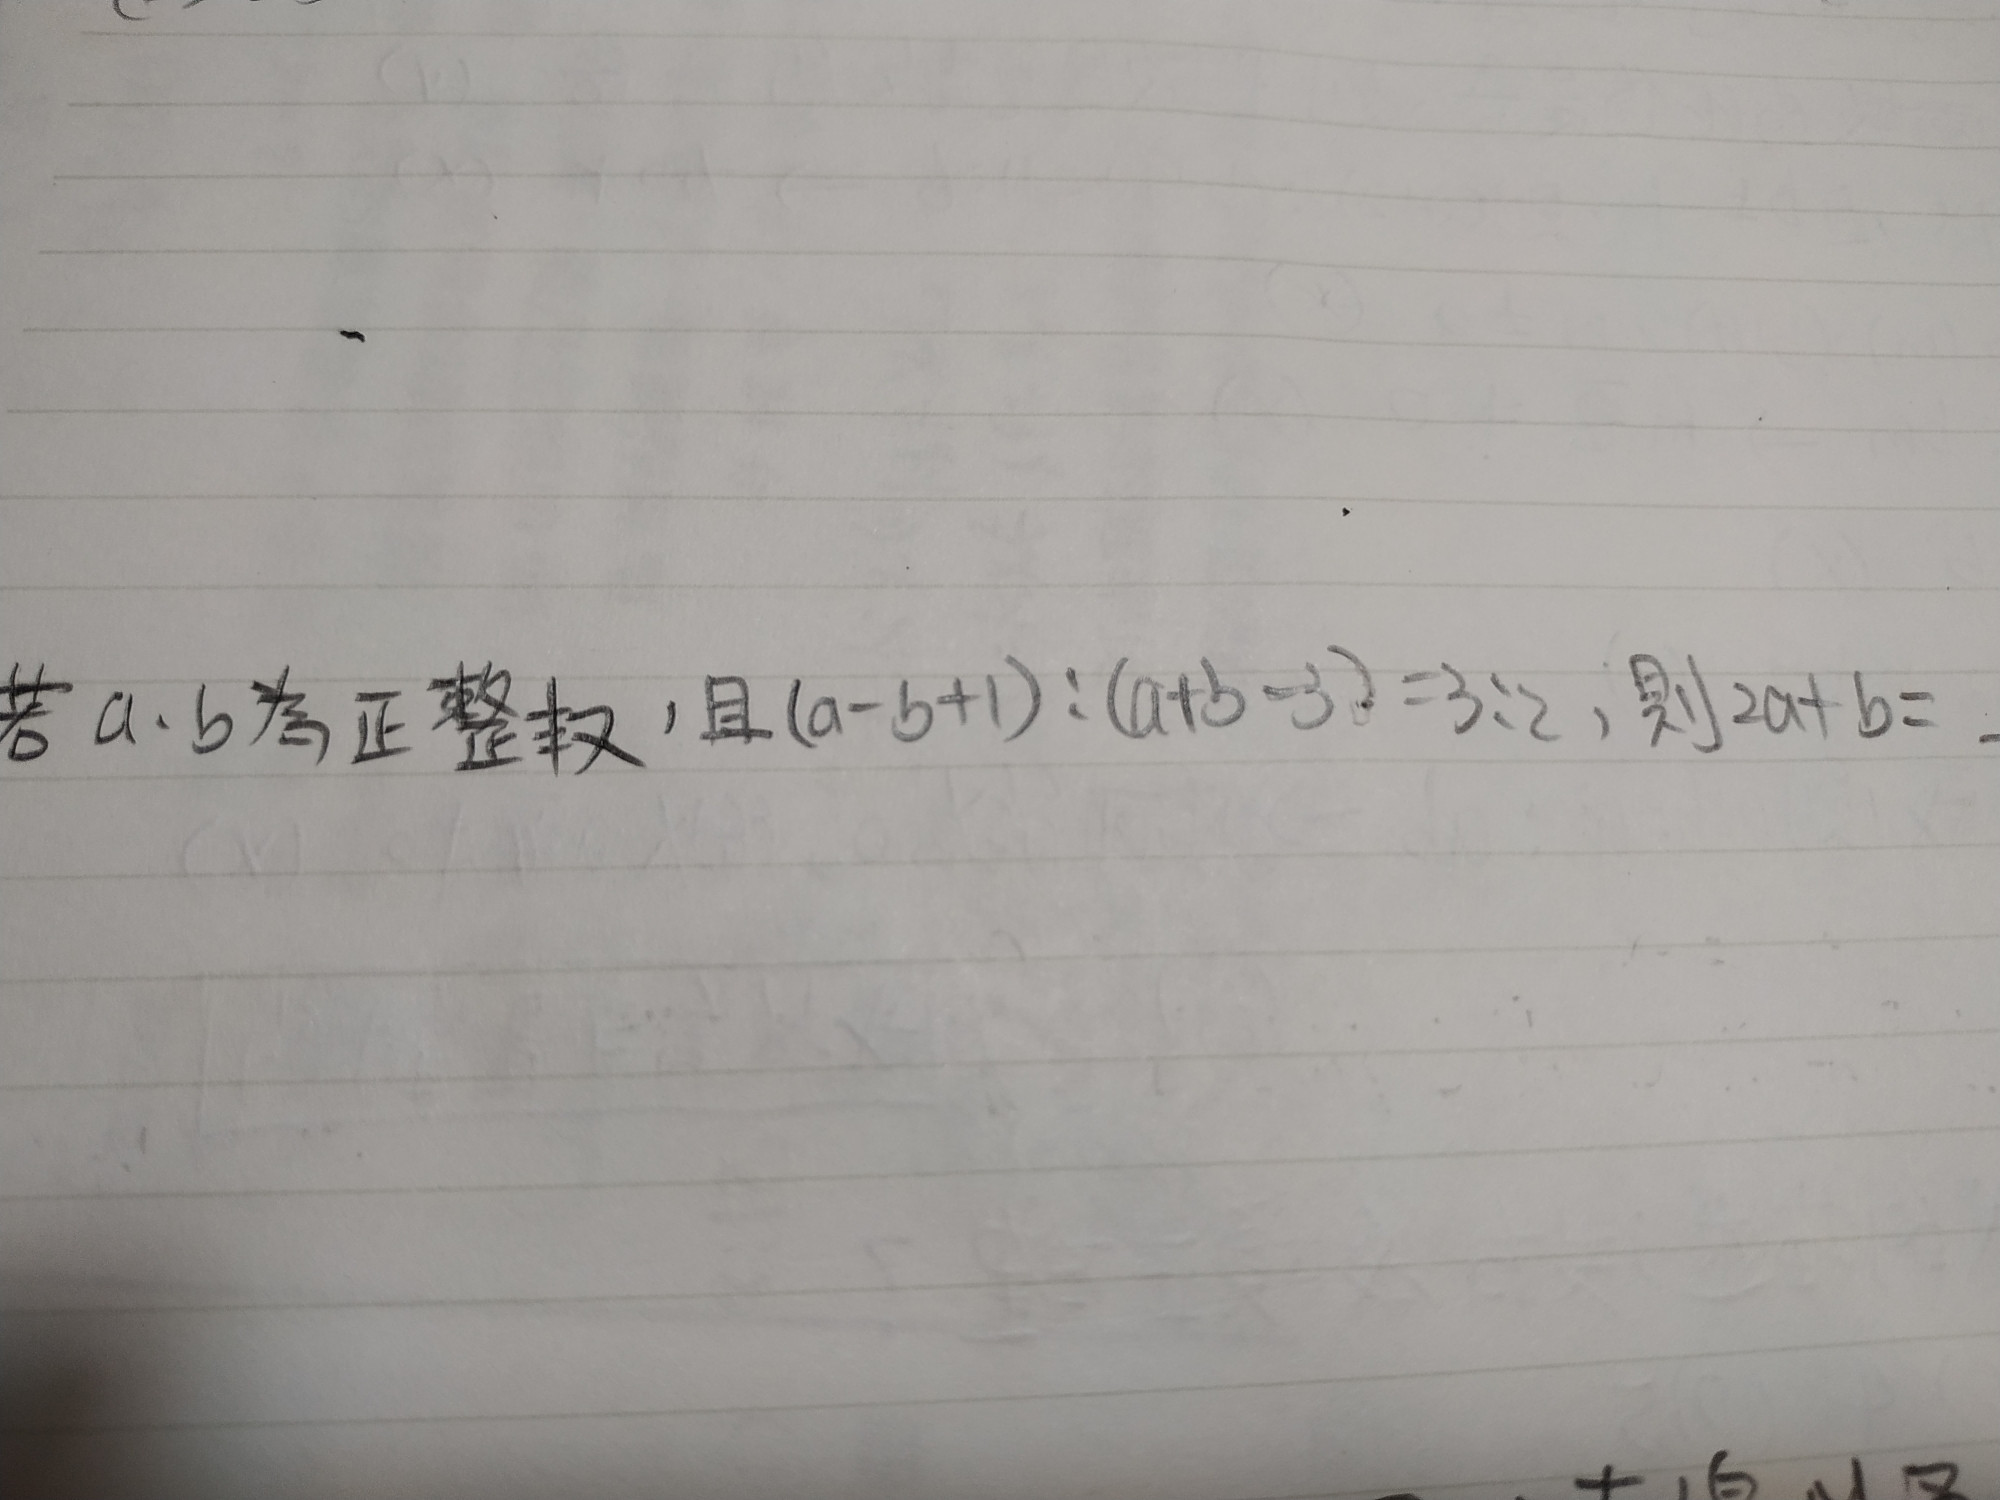 若a、b為正整数,且(a-b+1):(a+b-3)=3:2,則2a+b=_